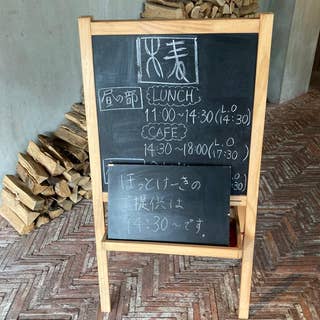 木麦
昼の部 LUNCH
11:00~14:30(L.O 14:30)
CAFE
14:30~18:00(L.O 17:30)
ほっとけーきの
提供は
14:30~です。